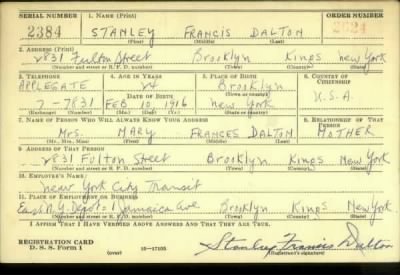 SERIAL NUMBER 1. NAME (Print) ORDER NUMBER
2384 STANLEY FRANCIS DALTON 2024
(First) (Middle) (Last)
2. ADDRESS (Print)
2831 Fulton Street Brooklyn Kings New York
(Number and street or R. F. D. number) (Town) (County) (State)
3. TELEPHONE 4. AGE IN YEARS 5. PLACE OF BIRTH 6. COUNTRY OF CITIZENSHIP
APPLEGATE 24 Brooklyn
DATE OF BIRTH (Town or county)
7-7831 FEB 10, 1916 New York U.S.A.
(Exchange) (Number) (Mo.) (Day) (Yr.) (State or country)
7. NAME OF PERSON WHO WILL ALWAYS KNOW YOUR ADDRESS 8. RELATIONSHIP OF THAT PERSON
Mrs. MARY FRANCES DALTON MOTHER
(Mr., Mrs., Miss) (First) (Middle) (Last)
9. ADDRESS OF THAT PERSON
2831 Fulton Street Brooklyn Kings New York
(Number and street or R. F. D. number) (Town) (County) (State)
10. EMPLOYER'S NAME
New York City Transit
11. PLACE OF EMPLOYMENT OR BUSINESS
East N.Y. Depot - Jamaica Ave Brooklyn Kings New York
(Number and street or R. F. D. number) (Town) (County) (State)
I AFFIRM THAT I HAVE VERIFIED ABOVE ANSWERS AND THAT THEY ARE TRUE.
REGISTRATION CARD
D. S. S. Form 1 (over) 16—17105 Stanley Francis Dalton
(Registrant's signature)